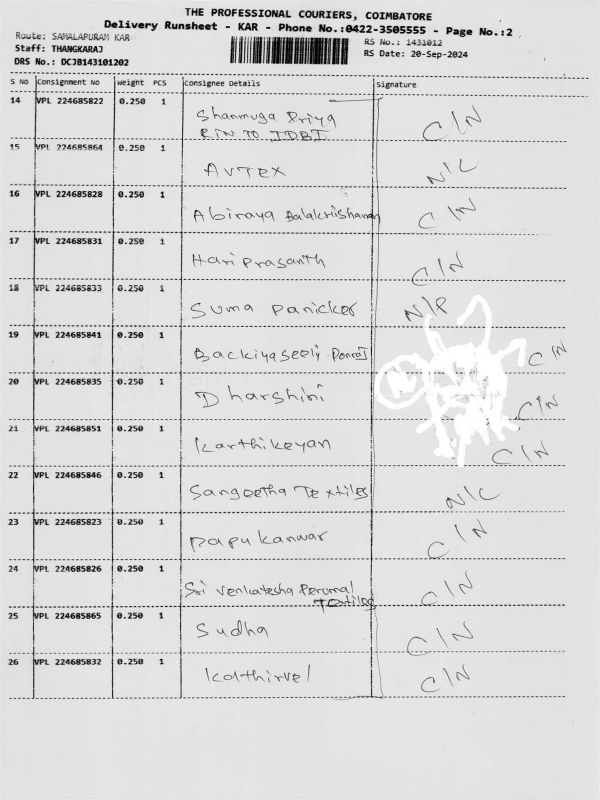 THE PROFESSIONAL COURIERS, COIMBATORE
Delivery Runsheet - KAR - Phone No.:0422-3505555 - Page No.:2
Route: SAMALAPURAM KAR
RS No.: 1431012
Staff: THANGKARAJ
RS Date: 20-Sep-2024
DRS No.: DCJB143101202
S NO Consignment No Weight PCS Consignee Details Signature
14 VPL 224685822 0.250 1 Shanmuga Priya C/N
RIN TO IDBI
15 VPL 224685864 0.250 1 AVTEX N/C
16 VPL 224685828 0.250 1 Abiraya Balakrishanan C/N
17 VPL 224685831 0.250 1 Hari Prasanth C/N
18 VPL 224685833 0.250 1 Suma Panicker N/P
19 VPL 224685841 0.250 1 Backiyaseely Ponraj C/N
20 VPL 224685835 0.250 1 Dharshini C/N
21 VPL 224685851 0.250 1 Karthikeyan C/N
22 VPL 224685846 0.250 1 Sangeetha Textiles N/C
23 VPL 224685823 0.250 1 Papu kanwar C/N
24 VPL 224685826 0.250 1 Sri Venkatesha Perumal C/N
Textiles
25 VPL 224685865 0.250 1 Sudha C/N
26 VPL 224685832 0.250 1 Kathirvel C/N